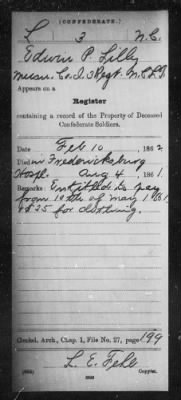 (CONFEDERATE.)
L 3 N.C.
Edwin P. Lilly
Co. D, 3 Regt. N.C.
Appears on a
Register
containing a record of the Property of Deceased
Confederate Soldiers.
Date Feb 10, 1862
Died in Fredericksburg
Hospl. Aug 4, 1861.
Remarks: Entitled to pay
from 10th of May 1861
$25 for clothing.
Confed. Arch., Chap. 1, File No. 27, page 199
L. E.
Copyist.